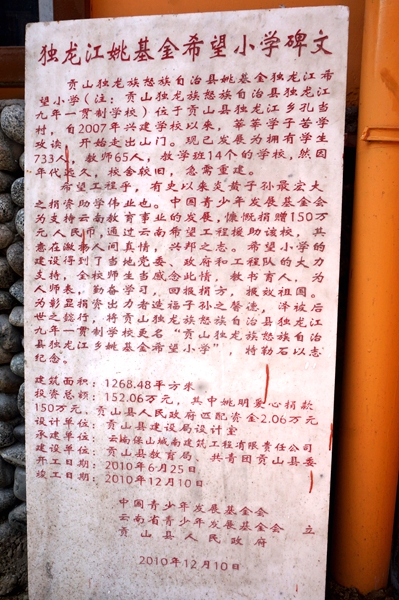 独龙江姚基金希望小学碑文
贡山独龙族怒族自治县姚基金独龙江希
望小学(注：贡山独龙族怒族自治县独龙江
九年一贯制学校)位于贡山县独龙江乡孔当
村，自2007年兴建学校以来，莘莘学子苦学
攻读，开始走出山门。现已发展为拥有学生
733人，教师65人，教学班14个的学校，然因
年代久，校舍较旧，急需重建。
希望工程乎，有史以来炎黄子孙最宏大
之捐资助学伟业也。中国青少年发展基金会
为支持云南教育事业的发展，慷慨捐赠150万
元人民币，通过云南希望工程援助该校，其
意在激人间真情，兴邦之志。希望小学的
建设得到了当地党委、政府和工程队的大力
支持，全校师生当感念此情，教书育人，为
人师表，勤奋学习，回报捐方，报效祖国。
为彰显捐资出力者造福子孙之誉迹，泽被后
世之懿行，将贡山独龙族怒族自治县独龙江
九年一贯制学校更名“贡山独龙族怒族自治
县独龙江乡姚基金希望小学”，特勒石以志
纪念。
建筑面积：1268.48平方米
投资总额：152.06万元，其中姚明爱心捐款
150万元、贡山县人民政府匹配资金2.06万元
设计单位：贡山县建设局设计室
承建单位：云南保山城南建筑工程有限责任公司
建设单位：贡山县教育局、共青团贡山县委
开工日期：2010年6月25日
竣工日期：2010年12月10日
中国青少年发展基金会
云南省青少年发展基金会 立
贡山县人民政府
2010年12月10日